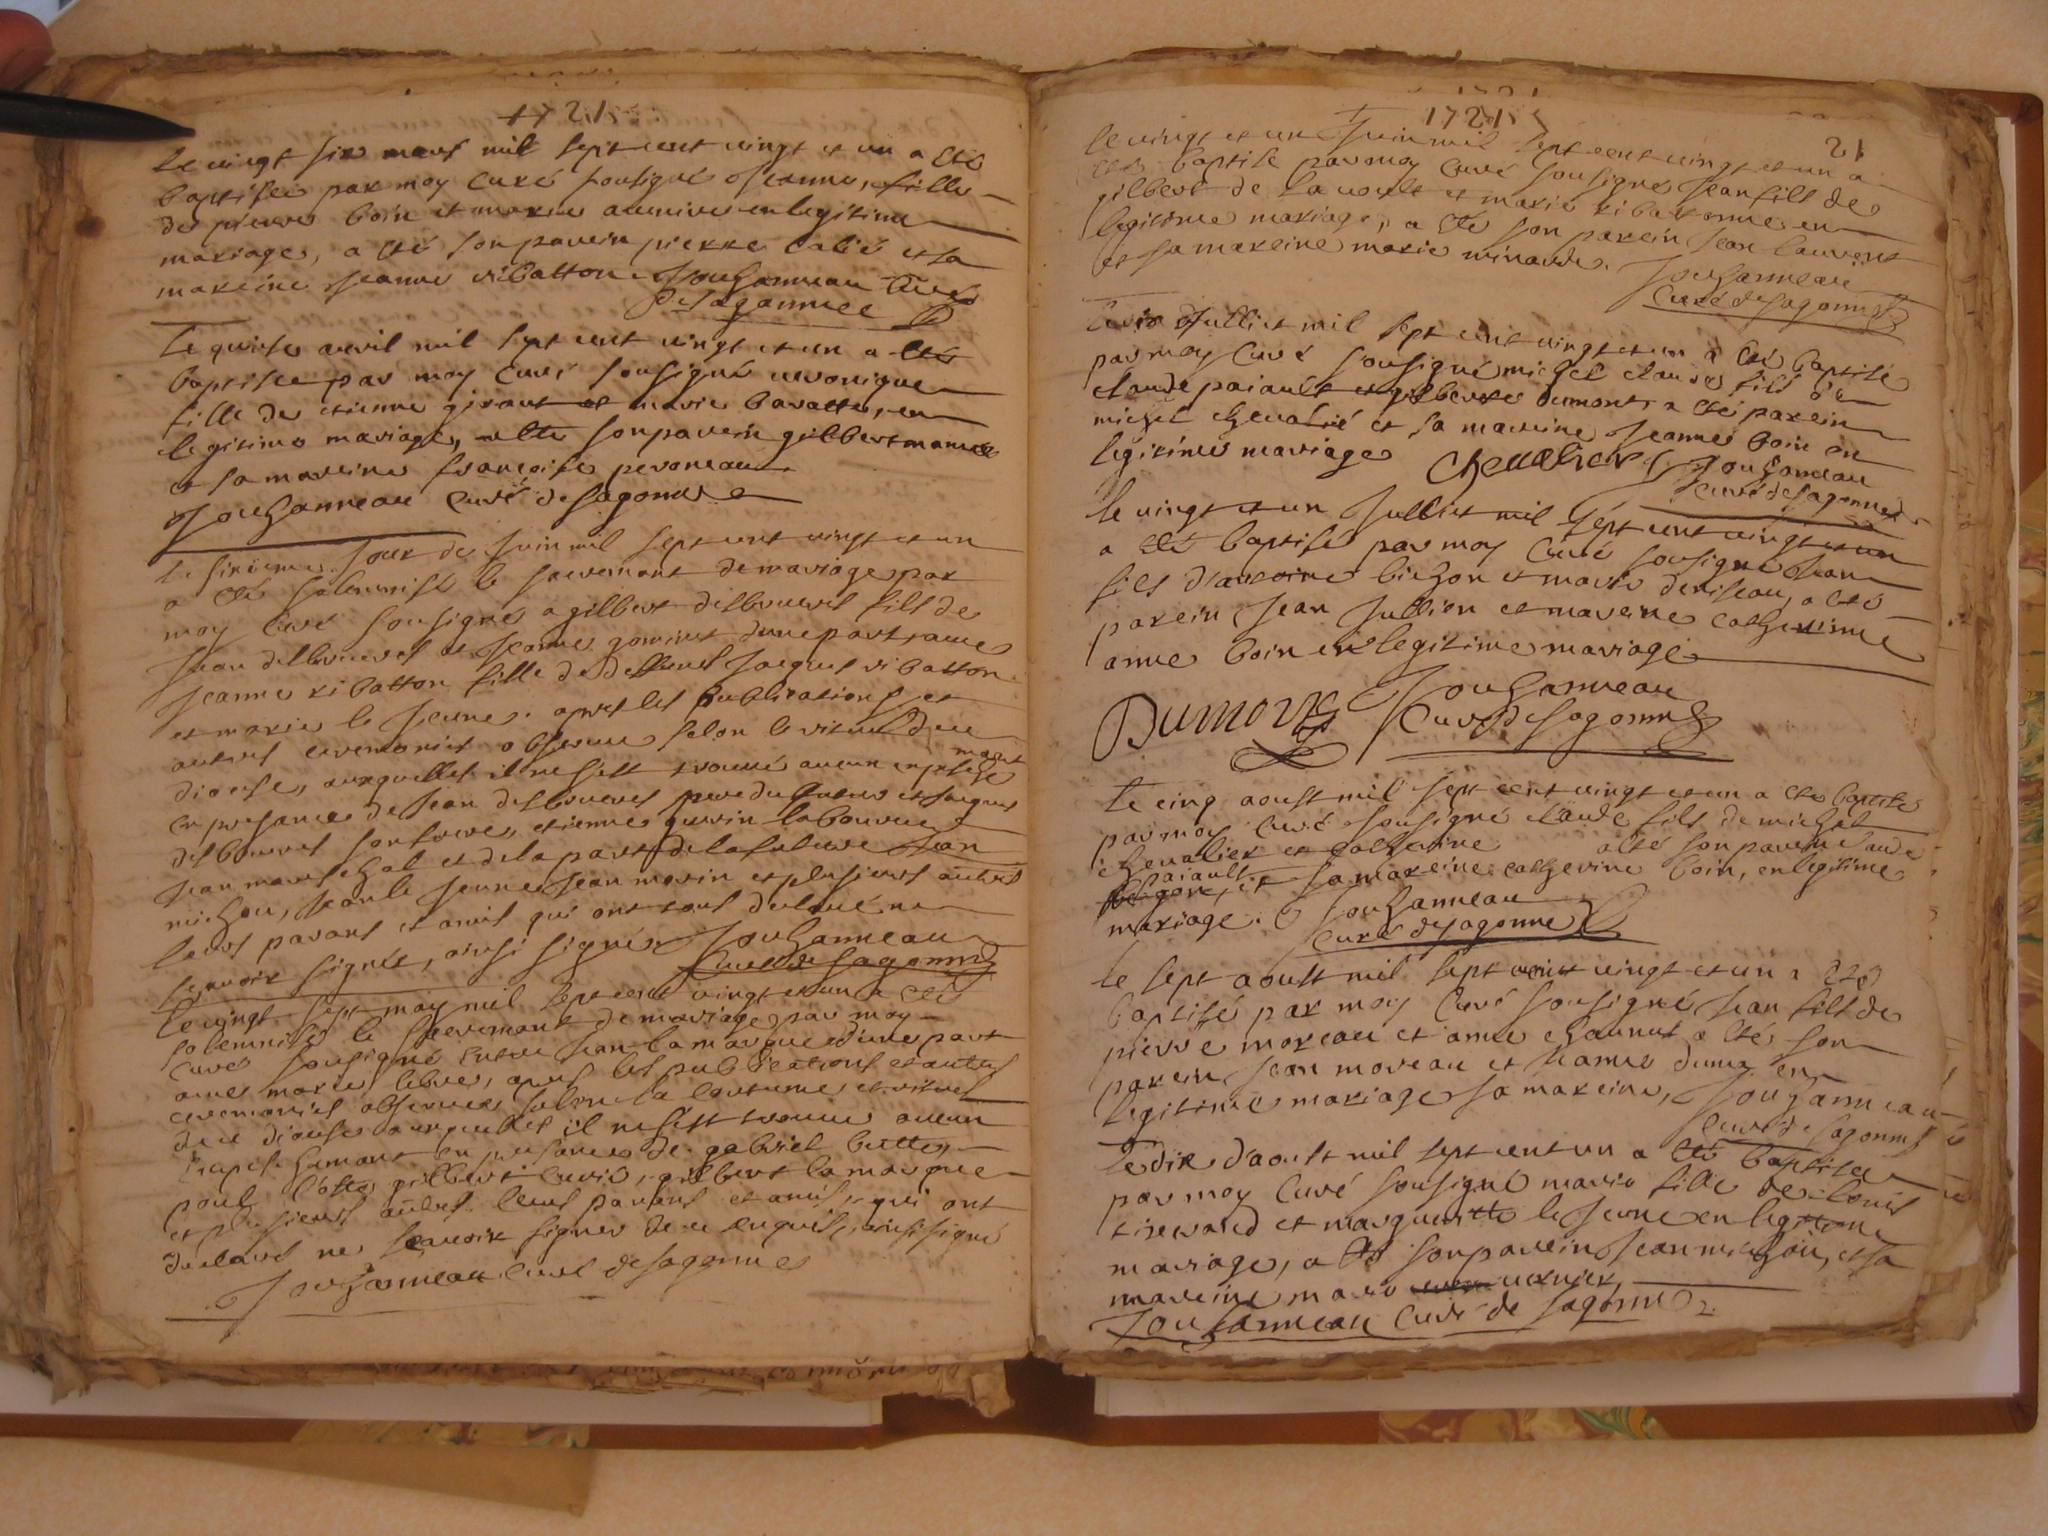 1721
le vingt six mars mil sept cent vingt et un a esté
baptisée par moy curé sousigné Jeanne, fille
de pierre boin et marie en legitime
mariage, a esté son parein pierre et sa
mareine Jeanne ribatton. Jouhanneau curé
de sagonnee
le quinse avril mil sept cent vingt et un a esté
baptisee par moy curé sousigné veronique
fille de etienne giraut et marie baratte, en
legitime mariage, a esté son parein gilbert
et sa mareine françoise peroneau
Jouhanneau curé de sagonne
le sixieme jour de Juin mil sept cent vingt et un
a esté solemnisé le sacrement de mariage par
moy curé sousigné a gilbert desbrueres fils de
Jean desbrueres et Jeanne dune part avec
Jeanne ribatton fille de deffunt Jacques ribatton
et marie le Jeune. apres les publications et
autres ceremonies observee selon le rituel de ce
diocese, auxquelles il ne sest trouvé aucun empeche
mant
en presance de Jean desbrueres pere du futur et Jacques
desbrueres son frere, etienne laboureur
Jean mareschal et de la part de la future Jean
michou, Jean le Jeune Jean morin et plusieurs autres
leurs parans et amis qui ont tous declaré ne
scavoir signer, ainsi signé Jouhanneau
curé de sagonne
le vingt sept may mil sept cent vingt et un a esté
solemnisé le sacremant de mariage par moy
curé sousigné entre Jean lamarque d'une part
avec marie, apres les publications et autres
ceremonies observees selon la coutume et rituel
de ce diocese auxquelles il ne sest trouvé aucun
empeschemant en presance de gabriel butte,
gilbert, gilbert lamarque
et plusieurs autres leurs parans et amis, qui ont
declaré ne scavoir signer de ce enquis, ainsi signé
Jouhanneau curé de sagonne
1721
21
le vingt et un Juin mil sept cent vingt et un a
esté baptisé par moy curé sousigné Jean fils de
gilbert de et marie en
legitime mariage, a esté son parein Jean laurent
et sa mareine marie minarde. Jouhanneau
curé de sagonne
le Julliet mil sept cent vingt et un a esté baptisé
par moy curé sousigné michel claude fils de
claude paiault et gilberte dumont, a esté parein
michel chevalié et sa mareine Jeanne boin en
legitime mariage Chevalier Jouhanneau
curé de sagonne
le vingt et un Julliet mil sept cent vingt et un
a esté baptisé par moy curé sousigné Jean
fils d'antoine bichon et marie deriseau, a esté
parein Jean Jullien et mareine catherinne
anne boin en legitime mariage
Dumont Jouhanneau
Curé de sagonne
le cinq aoust mil sept cent vingt et un a esté baptisé
par moy curé sousigné claude fils de michel
chevalier et catherine a esté son parein claude
paiault
et sa mareine catherine boin, en legitime
mariage. Jouhanneau
curé de sagonne
le sept aoust mil sept cent vingt et un a esté
baptisé par moy curé sousigné Jean fils de
pierre moreau et anne a esté son
parein Jean moreau et Jeanne en
legitime mariage sa mareine, Jouhanneau
curé de sagonne
le dix d'aoust mil sept cent un a esté baptisee
par moy curé sousigné marie fille de louis
et marguerite le Jeune en legitime
mariage, a esté son parein Jean michou, et sa
mareine marie vernier
Jouhanneau curé de sagonne